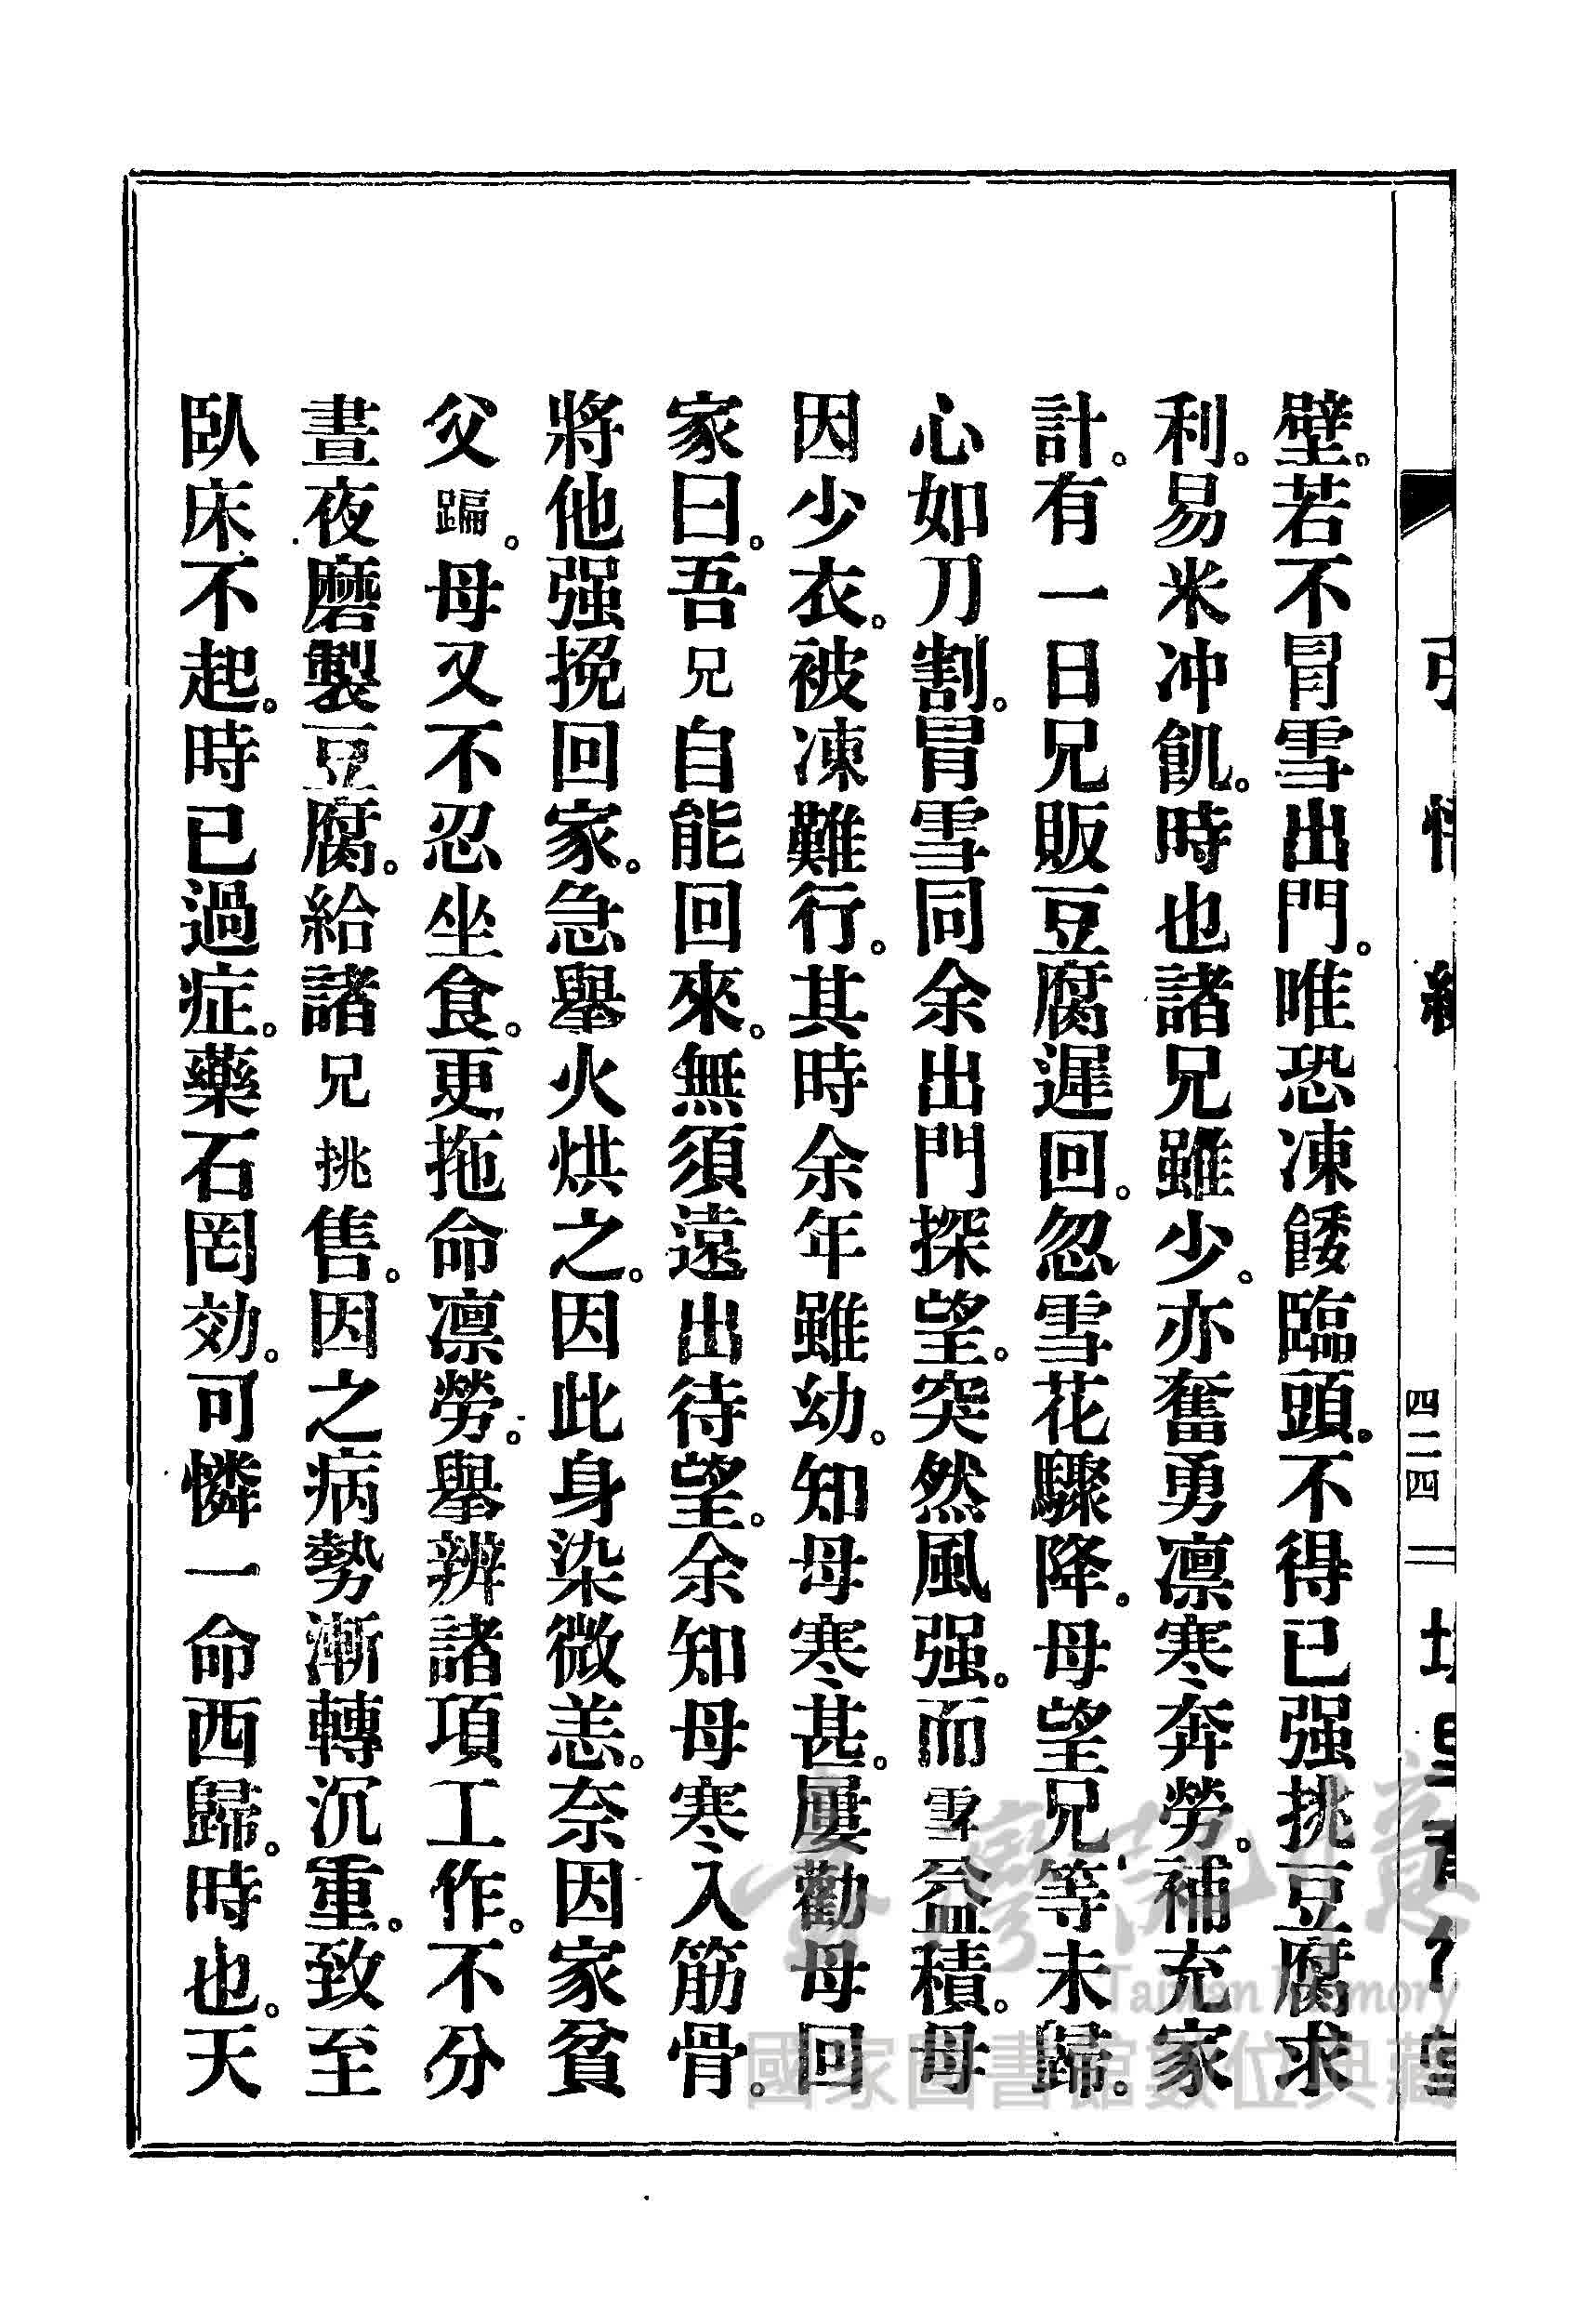 四二四
壁。若不冒雪出門。唯恐凍餧臨頭。不得已强挑豆腐求
利。易米冲飢。時也諸兄雖少。亦奮勇凛寒奔勞。補充家
計。有一日兄販豆腐遲回。忽雪花驟降。母望兄等未歸。
心如刀割。冒雪同余出門探望。突然風强。而雪益積。母
因少衣。被凍難行。其時余年雖幼。知母寒甚。屢勸母回
家曰。吾兄自能回來。無須遠出待望。余知母寒入筋骨。
將他强挽回家。急舉火烘之。因此身染微恙。奈因家貧
父蹁。母又不忍坐食。更拖命凛勞。舉辦諸項工作。不分
晝夜磨製豆腐。給諸兄挑售。因之病勢漸轉沉重。致至
臥床不起。時已過症。藥石罔効。可憐一命西歸。時也。天
臺灣記憶
Taiwan Memory
國家圖書館數位典藏